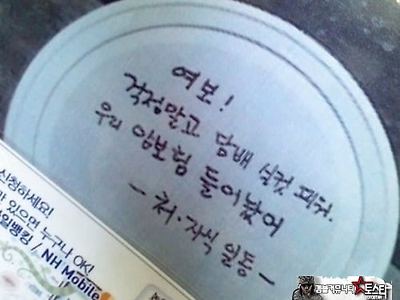 여보!
걱정말고 담배 실컷 펴.
우리 암보험 들어놨어
- 처·자식 일동 -
신청하세요!
있으면 누구나 OK!
일뱅킹 / NH Mobile